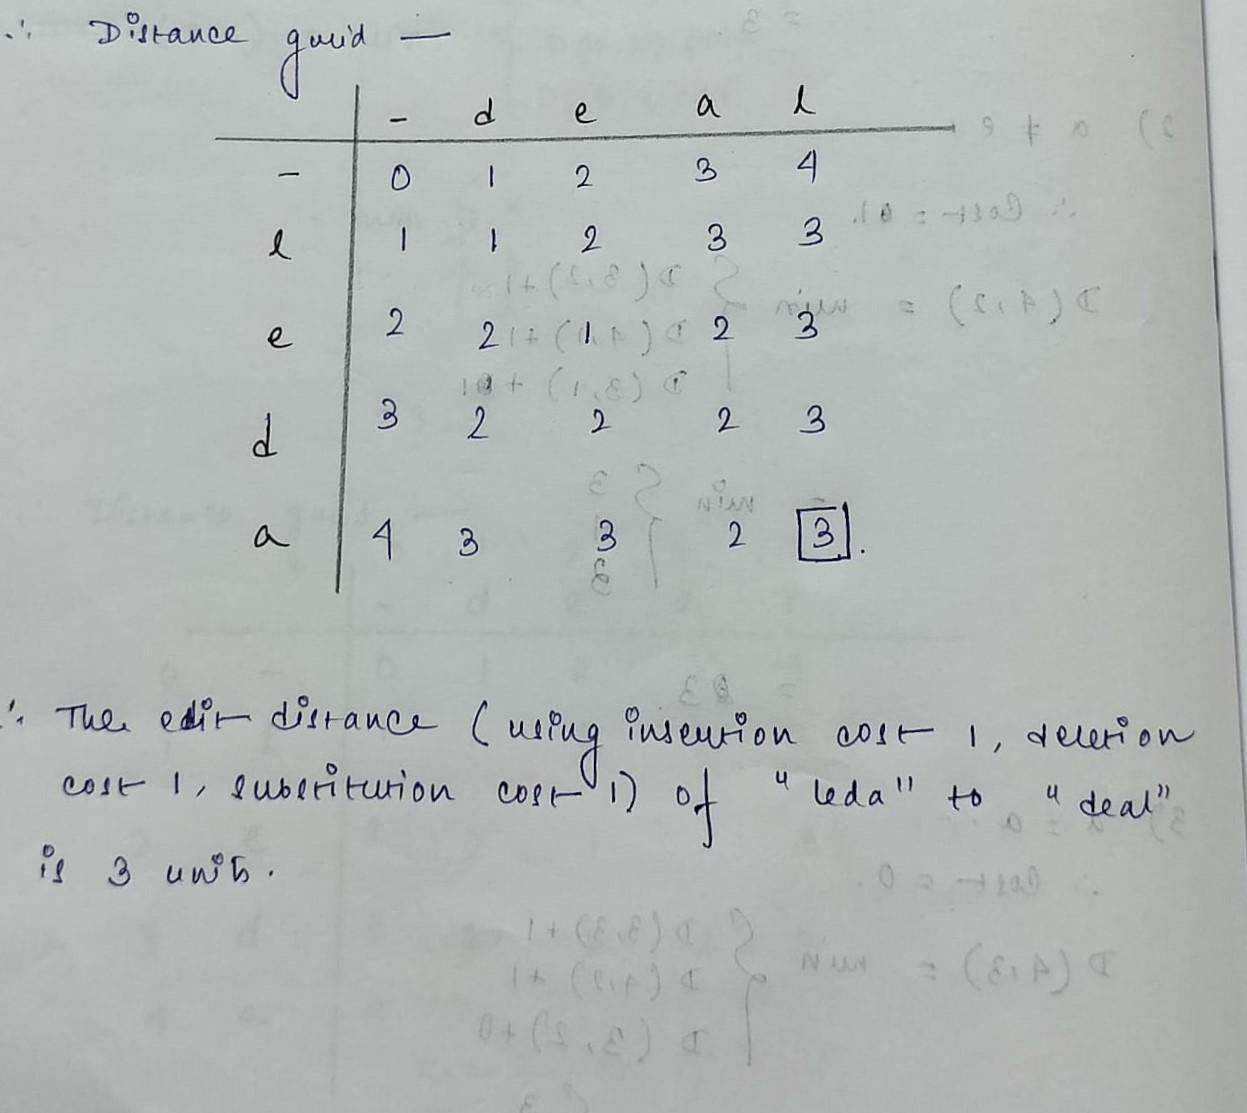 ∴ Distance grid —
- d e a l
- 0 1 2 3 4
l 1 1 2 3 3
e 2 2 1 2 3
d 3 2 2 2 3
a 4 3 3 2 3.
∴ The edit distance (using insertion cost 1, deletion
cost 1, substitution cost 1) of "leda" to "deal"
is 3 units.